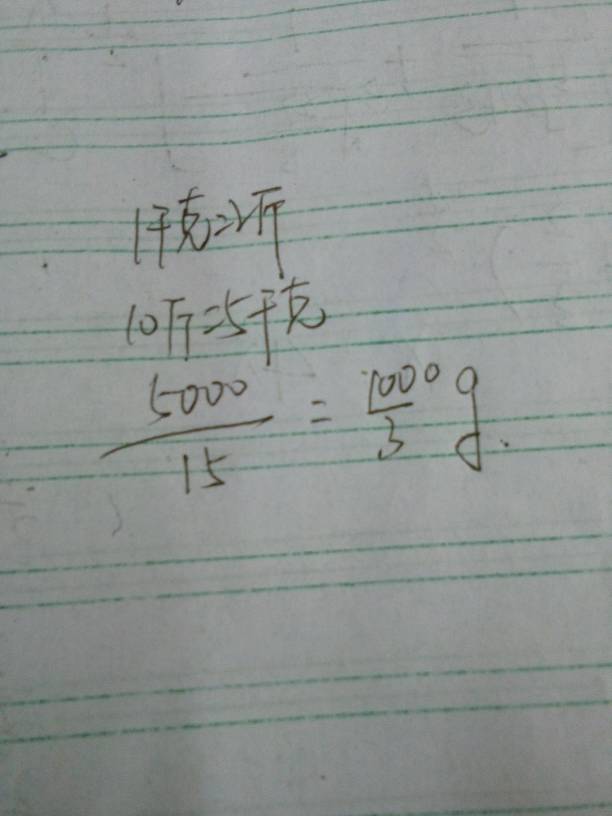 1千克=2斤
10斤=5千克
5000/15 = 1000/3 g.